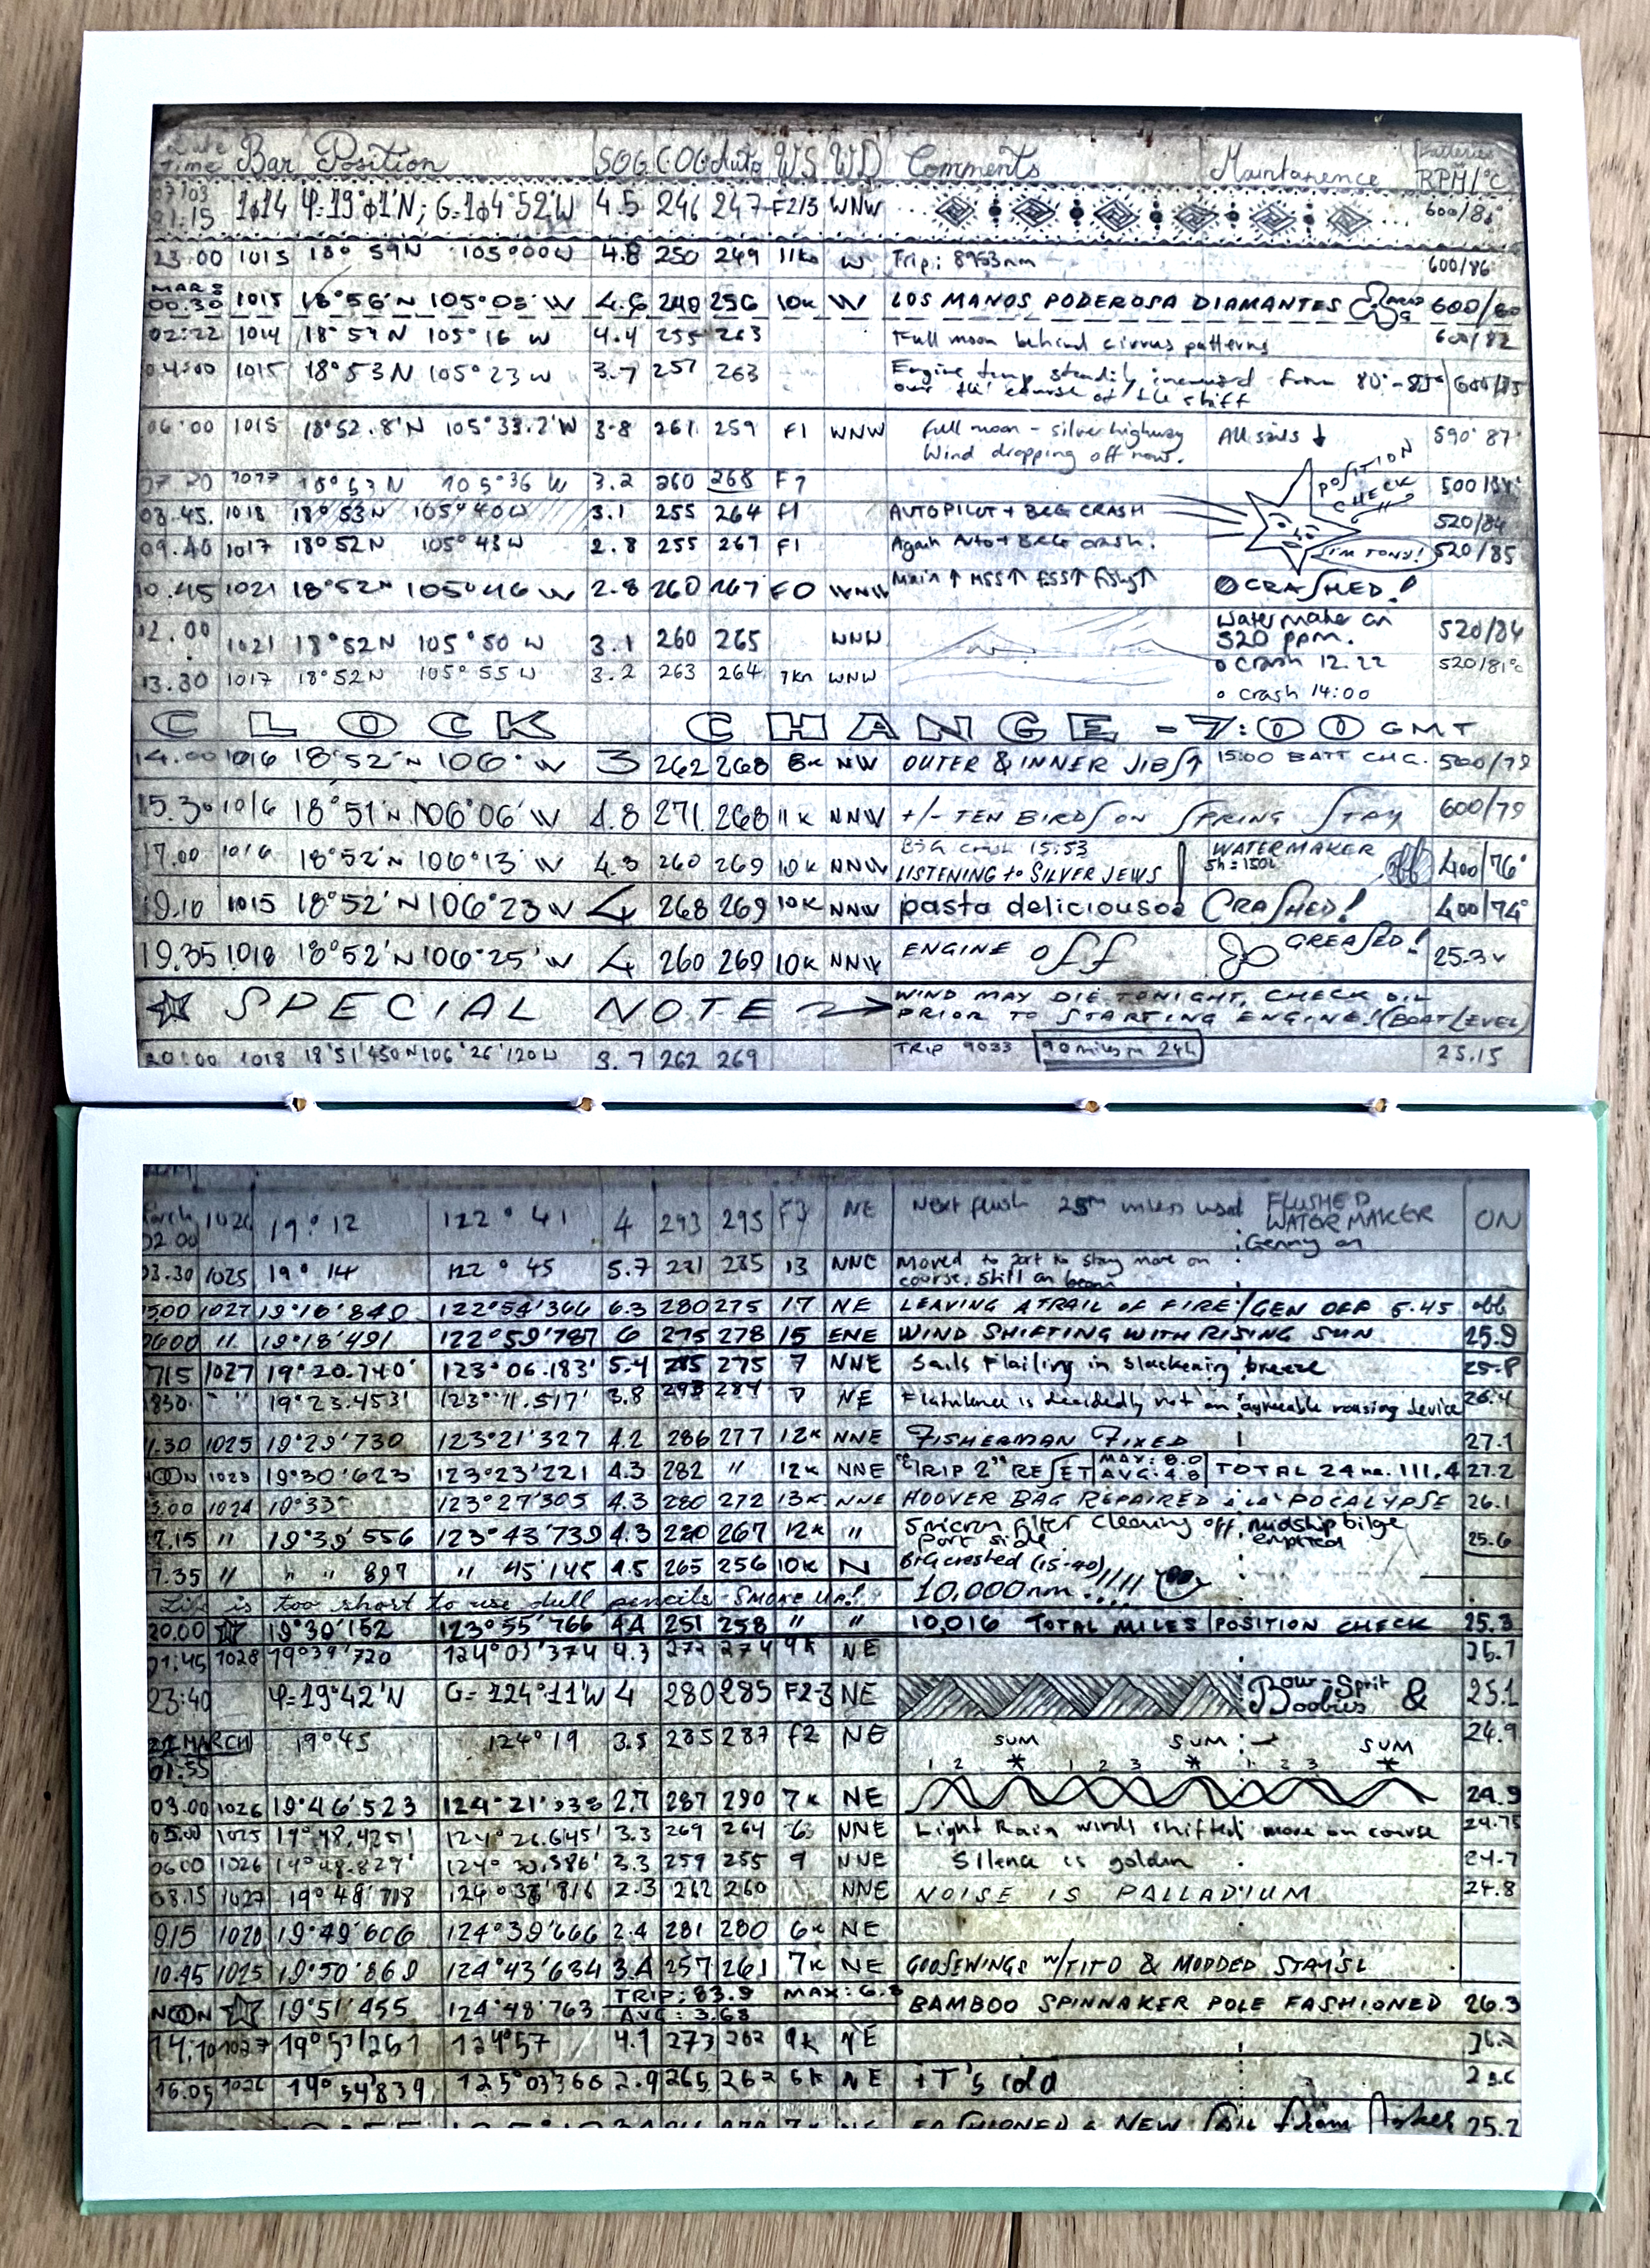 Date
Time Bar Position SOG COG Auto WS WD Comments Maintanence Batteries RPM/°C
07/03
21:15 1014 φ=19°01'N; G=104°52'W 4.5 246 247 F2/3 WNW 600/86°
23.00 1015 18° 59N 105°00W 4.8 250 249 11kn W Trip: 8953nm 600/86
MAR 8
00.30 1015 18°56'N 105°08'W 4.6 240 256 10k W LOS MANOS PODEROSA DIAMANTES 600/80
02:22 1014 18°57N 105°16 W 4.4 255 263 Full moon behind cirrus patterns 600/82
04:00 1015 18°53N 105°23W 3.7 257 263 Engine temp steadily increased from 80°-85° 600/85
over the course of the shift
06:00 1015 18°52.8'N 105°33.2'W 3.8 261 259 F1 WNW Full moon - silver highway All sails ↓ 590 87°
Wind dropping off now.
POSITION
CHECK
07 20 1017 18°53N 105°36 W 3.2 260 268 F? 500/84°
08.45. 1018 18°53N 105°40W 3.1 255 264 F1 AUTOPILOT + B&G CRASH 520/84
09.40 1017 18°52N 105°43W 2.8 255 267 F1 Again Auto + B&G crash. I'M TONY! 520/85
10.45 1021 18°52N 105°46 W 2.8 260 267 F0 WNW Main ↑ MSS↑ FSS↑ Fishy↑ CRASHED!
12.00 1021 18°52N 105°50 W 3.1 260 265 WNW Watermaker on 520/84
520 ppm.
o Crash 12.22
13.30 1017 18°52N 105°55W 3.2 263 264 7kn WNW 520/81°c
o Crash 14:00
CLOCK CHANGE -7:00 GMT
14.00 1016 18°52'N 106°W 3 262 268 8k NW OUTER & INNER JIBS↑ 15:00 BATT CHG. 500/79
15.30 1016 18°51'N 106°06'W 4.8 271 268 11k NNW +/- TEN BIRDS ON SPRING STAY 600/79
17.00 1016 18°52'N 106°13'W 4.3 260 269 10k NNW B&G crash 15:53 WATERMAKER off 400/76°
LISTENING to SILVER JEWS 5h = 150L
19.10 1015 18°52'N 106°23W 4 268 269 10k NNW pasta deliciousoe CRASHED! 400/74°
19.35 1018 18°52'N 106°25'W 4 260 269 10k NNW ENGINE off GREASED! 25.3v
SPECIAL NOTE → WIND MAY DIE TONIGHT, CHECK OIL
PRIOR TO STARTING ENGINE! (BOAT LEVEL)
20:00 1018 18°51'450N 106°26'120W 3.7 262 269 TRIP 9033 90 miles in 24h 25.15
March
02.00 1026 19°12 122°41 4 293 295 F3 NE Next flush 25th unless used FLUSHED ON
WATERMAKER
Genny on
03.30 1025 19°14 122°45 5.7 281 285 13 NNE Moved to port to stay more on
course. Still on beam
5.00 1027 19°16'840 122°54'366 6.3 280 275 17 NE LEAVING A TRAIL OF FIRE / GEN OFF 5.45 off
0600 " 19°18'491 122°59'787 6 275 278 15 ENE WIND SHIFTING WITH RISING SUN 25.9
715 1027 19°20.740' 123°06.183' 5.4 285 275 7 NNE Sails flailing in slackening breeze 25.8
830 " 19°23.453' 123°11.517' 3.8 293 284 7 NE Flatulence is decidedly not an agreeable rousing device 26.4
11.30 1025 19°29'730 123°21'327 4.2 286 277 12k NNE FISHERMAN FIXED 27.1
NOON 1023 19°30'623 123°23'221 4.3 282 " 12k NNE "TRIP 2" RESET MAX: 8.0 AVG: 4.8 TOTAL 24 HR. 111.4 27.2
3.00 1024 19°33 123°27'305 4.3 280 272 13k NNE HOOVER BAG REPAIRED a la 'POCALYPSE 26.1
7.15 " 19°39'556 123°43'739 4.3 280 267 12k " 5 micron filter cleaning off, midship bilge 25.6
port side emptied
7.35 " " " 897 " 45'145 4.5 265 256 10k N B&G crashed (15-40)
10.000nm
Life is too short to use dull pencils. SMOKE UP!
20.00 19°39'152 123°55'766 4.4 251 258 " " 10,016 TOTAL MILES POSITION CHECK 25.3
21:45 1028 19°39'720 124°03'374 4.3 272 274 9k NE 25.7
23:40 φ=19°42'N G=124°11'W 4 280 285 F2-3 NE Bow-Sprit 25.1
Boobies &
22 MARCH
01:55 19°45 124°19 3.5 285 287 F2 NE SUM SUM SUM 24.9
1 2 * 1 2 3 * 1 2 3 *
03.00 1026 19°46'523 124°21'938 2.7 287 290 7k NE 24.9
05.00 1025 19°48.425' 124°26.645' 3.3 269 264 6 NNE Light Rain winds shifted more on course 24.75
0600 1026 19°48.829' 124°30.586' 3.3 259 255 9 NNE Silence is golden 24.7
08.15 1027 19°48'718 124°38'816 2.3 262 260 NNE NOISE IS PALLADIUM 24.8
915 1028 19°49'606 124°39'666 2.4 281 280 6k NE
10.45 1025 19°50'869 124°43'634 3.4 257 261 7k NE GOOSEWINGS W/TITO & MODDED STAYS'L
NOON 19°51'455 124°48'763 TRIP: 83.9 MAX: 6.8 BAMBOO SPINNAKER POLE FASHIONED 26.3
AVG: 3.68
14:10 1027 19°53'261 124°57 4.1 273 262 9k NE 26.2
16.05 1026 19°54'839 125°03'366 2.9 265 262 6k NE iT's cold
FASHIONED a NEW Sail from 25.2